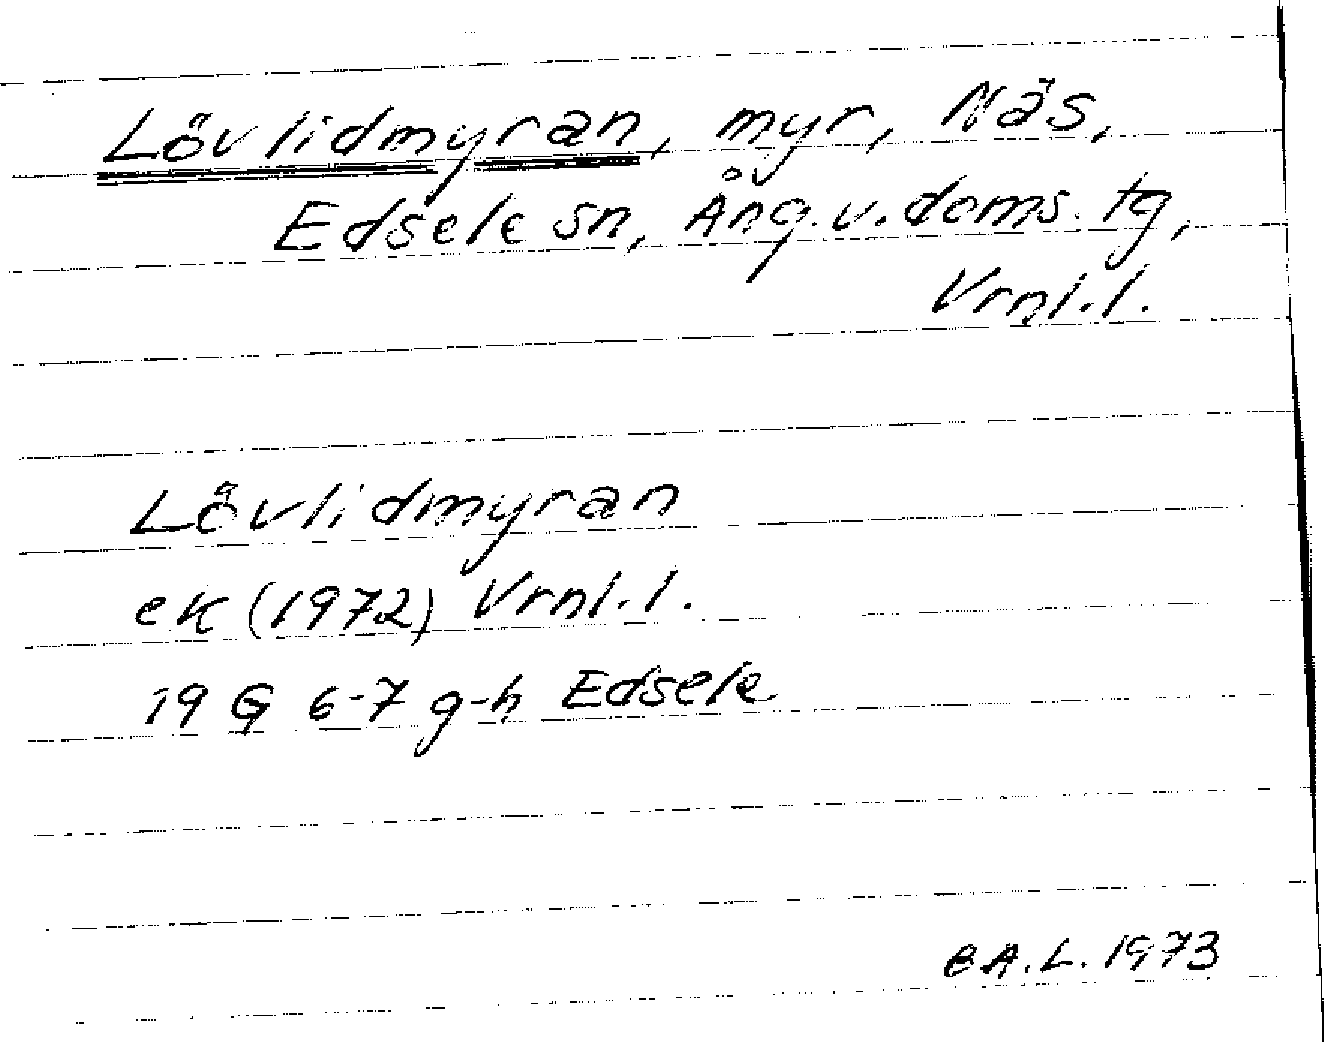 Lövlidmyran, myr, Näs,
Edsele sn, Ång.v.doms.tg,
Vrnl.l.
Lövlidmyran
ek (1972) Vrnl.l.
19 G 6-7 g-h Edsele
BA.L. 1973